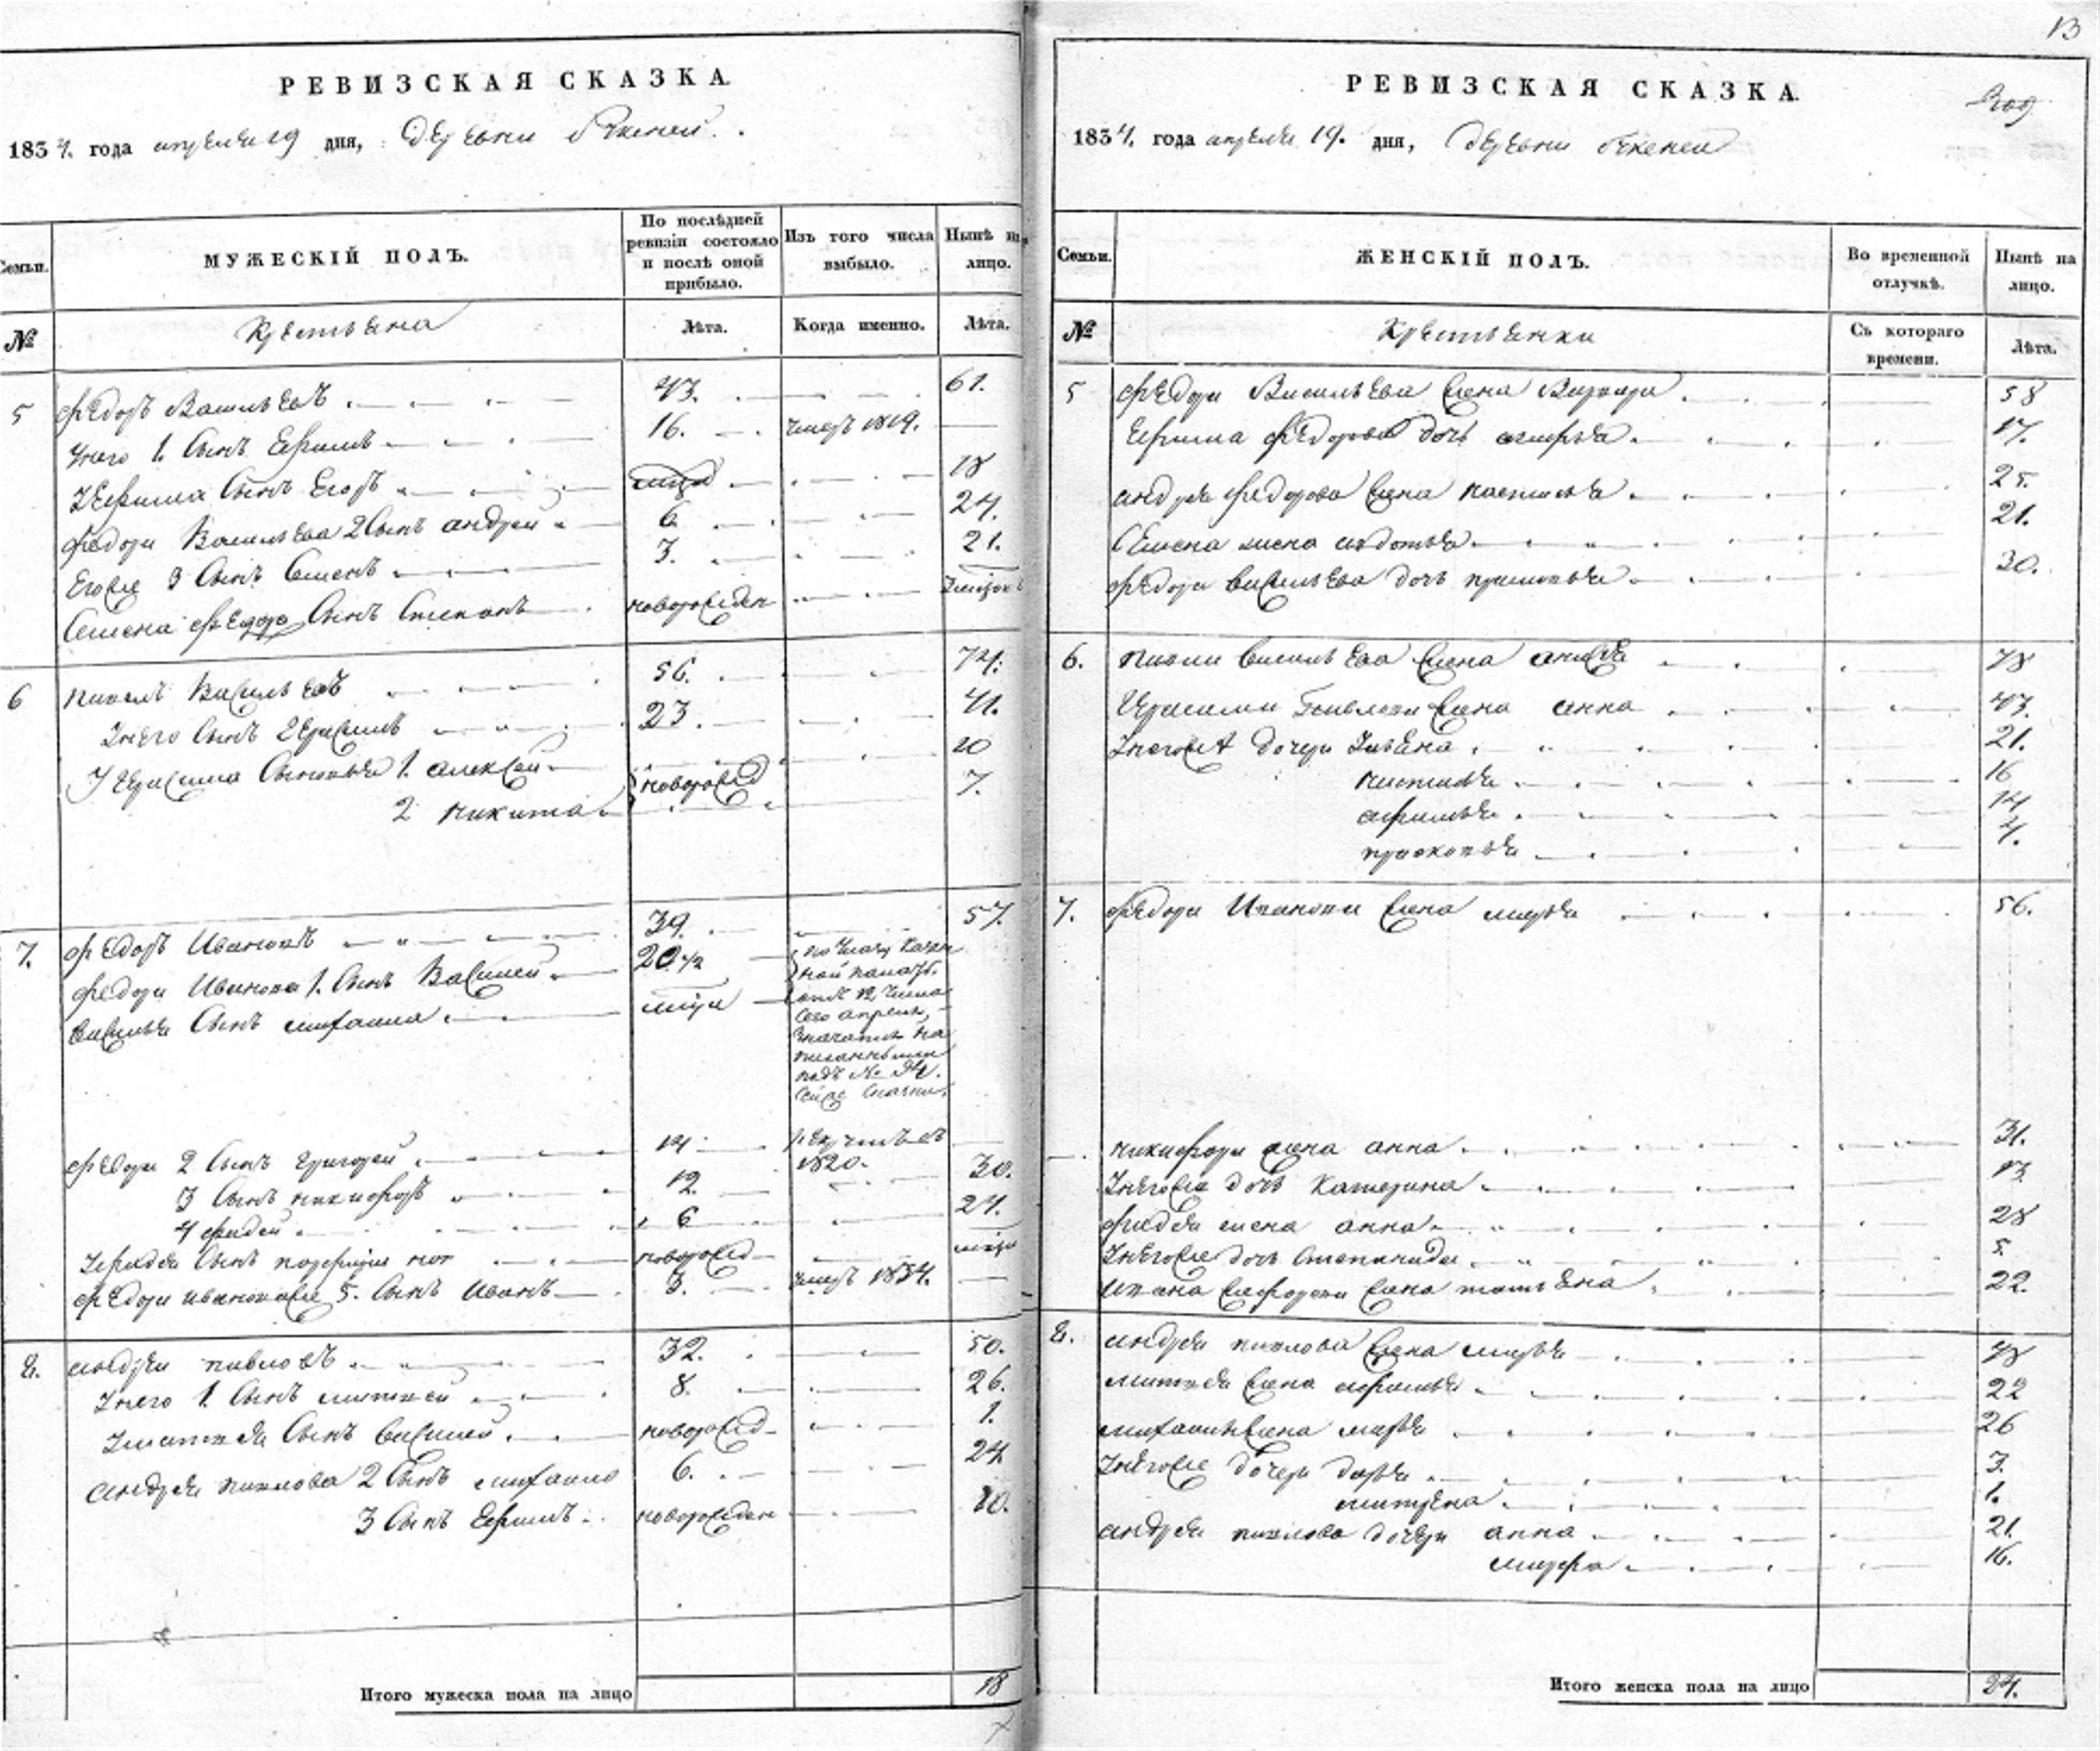 РЕВИЗСКАЯ СКАЗКА.
1834. года апреля 19 дня, деревни
Семьи.
МУЖЕСКІЙ ПОЛЪ.
По послѣдней ревизіи состояло и послѣ оной прибыло.
Изъ того числа выбыло.
Нынѣ на лицо.
№
Крестьяна
Лѣта.
Когда именно.
Лѣта.
5 Федоръ Васильевъ 43. 61.
Унего 1. Сынъ Ефимъ 16. умеръ 1819.
УЕфима Сынъ Егоръ 18
Федора Васильева 2 Сынъ андрей 6 24.
Егоже 3 Сынъ Семенъ 3. 21.
Семена Сынъ Степанъ новорожден
6 павелъ Васильевъ 56. 74.
Унего Сынъ Герасимъ 23. 41.
УГерасима Сыновья 1. алексей новорожд 20
2 никита 7.
7. Федоръ Ивановъ 39. 57.
Федора Иванова 1. Сынъ Василей 20 1/2 по Указу Казен
ной палаты
отъ 12 Числа
сего апреля,
Значатся на
писанными
подъ №
сей же Сказки.
Василья Сынъ михаила
Федора 2 Сынъ григорей 14 1820.
3 Сынъ никифоръ 12. 30.
4 фадей 6 24.
Уфадея Сынъ новорожд
Федора ивановаже 5. Сынъ Иванъ 3. умеръ 1834.
8. андрей павловъ 32. 50.
Унего 1. Сынъ матвей 8. 26.
Уматвея Сынъ Василей новорожд 1.
андрея павлова 2 Сынъ михаило 6. 24
3 Сынъ Ефимъ новорожден 10.
Итого мужеска пола на лицо 18
13
РЕВИЗСКАЯ СКАЗКА.
1834. года апреля 19. дня, деревни
Семьи.
ЖЕНСКІЙ ПОЛЪ.
Во временной отлучкѣ.
Нынѣ на лицо.
№
Крестьянки
Съ котораго времени.
Лѣта.
5 Федора Васильева жена Варвара 58
Ефима Федорова дочь 17.
андрея федорова жена настасья 25.
Семена жена авдотья 21.
Федора васильева дочь 30.
6. павла васильева жена 78
Герасима Павлова жена анна 43.
Унегожъ дочери Ульяна 21.
настасья 16
афимья 14
прасковья 4.
7. Федора Иванова жена марья 56.
никифора жена анна 31.
Унегоже дочь Катерина 13
фадея жена анна 28
Унегоже дочь Степанида 5.
Ивана жена татьяна 22.
8. андрея павлова жена марья 48
матвея жена афимья 22
михаилы жена марья 26
Унегоже дочери дарья 3.
матрена 1.
андрея павлова дочери анна 21.
марфа 16.
Итого женска пола на лицо 24.